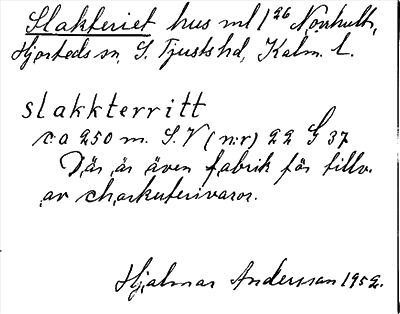 Slakteriet hus ml 1²⁶ Norrhult,
Hjorteds sn, S. Tjusts hd, Kalm. l.
slakkterritt
ca 250 m. S.V (n:r) 22 G 37
Där är även fabrik för tillv.
av charkuterivaror.
Hjalmar Andersson 1952.